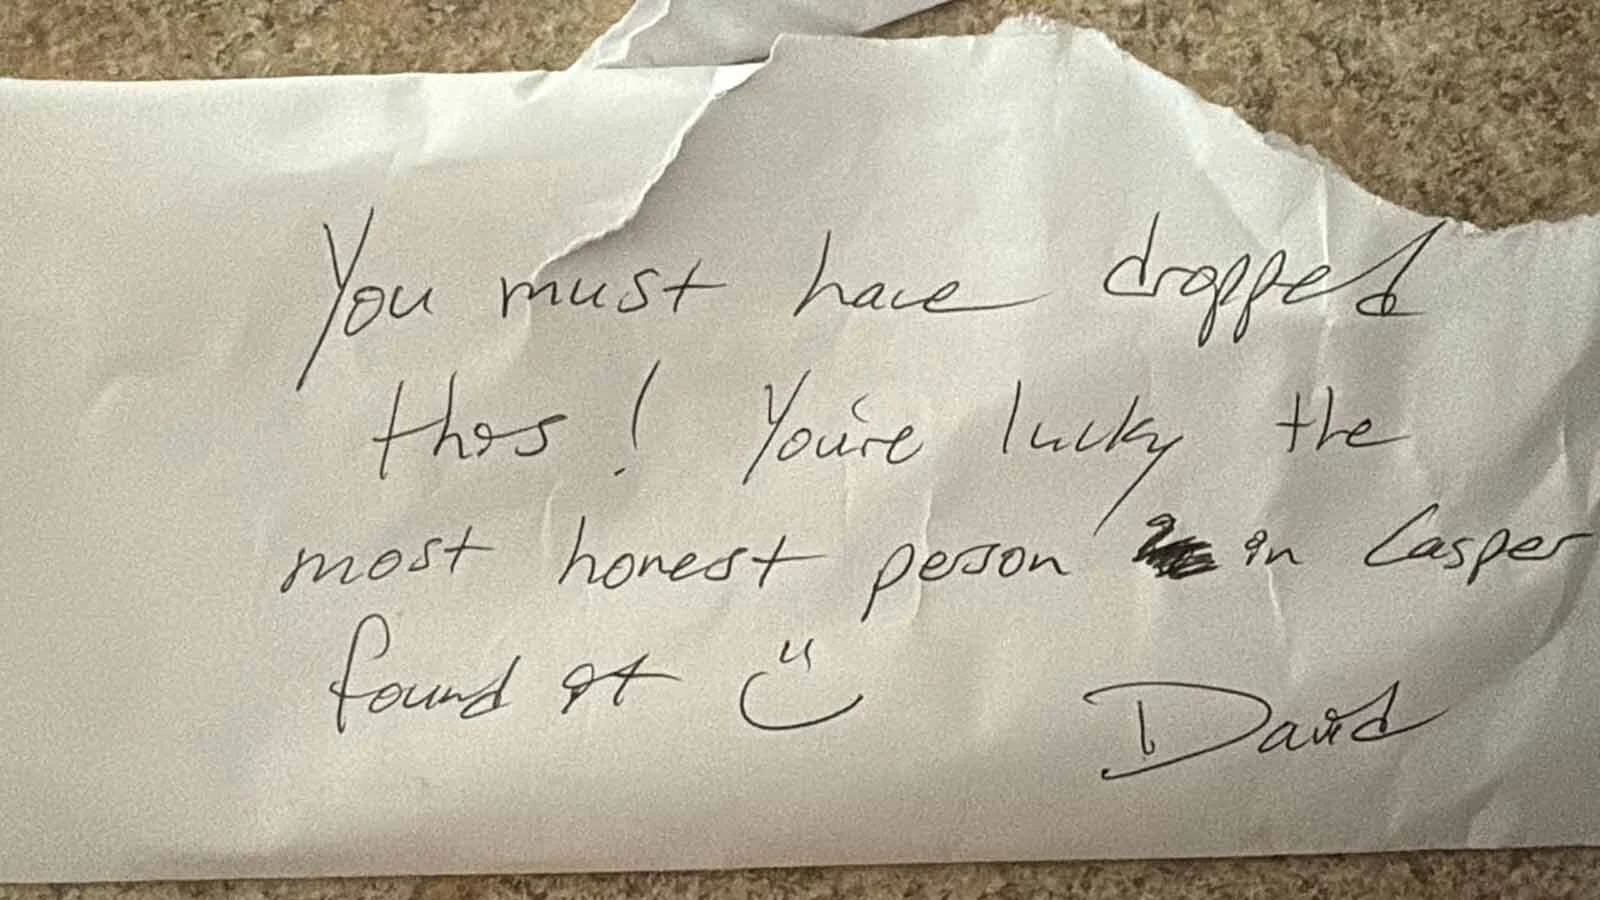 You must have dropped
this! You're lucky the
most honest person in Casper
found it
David